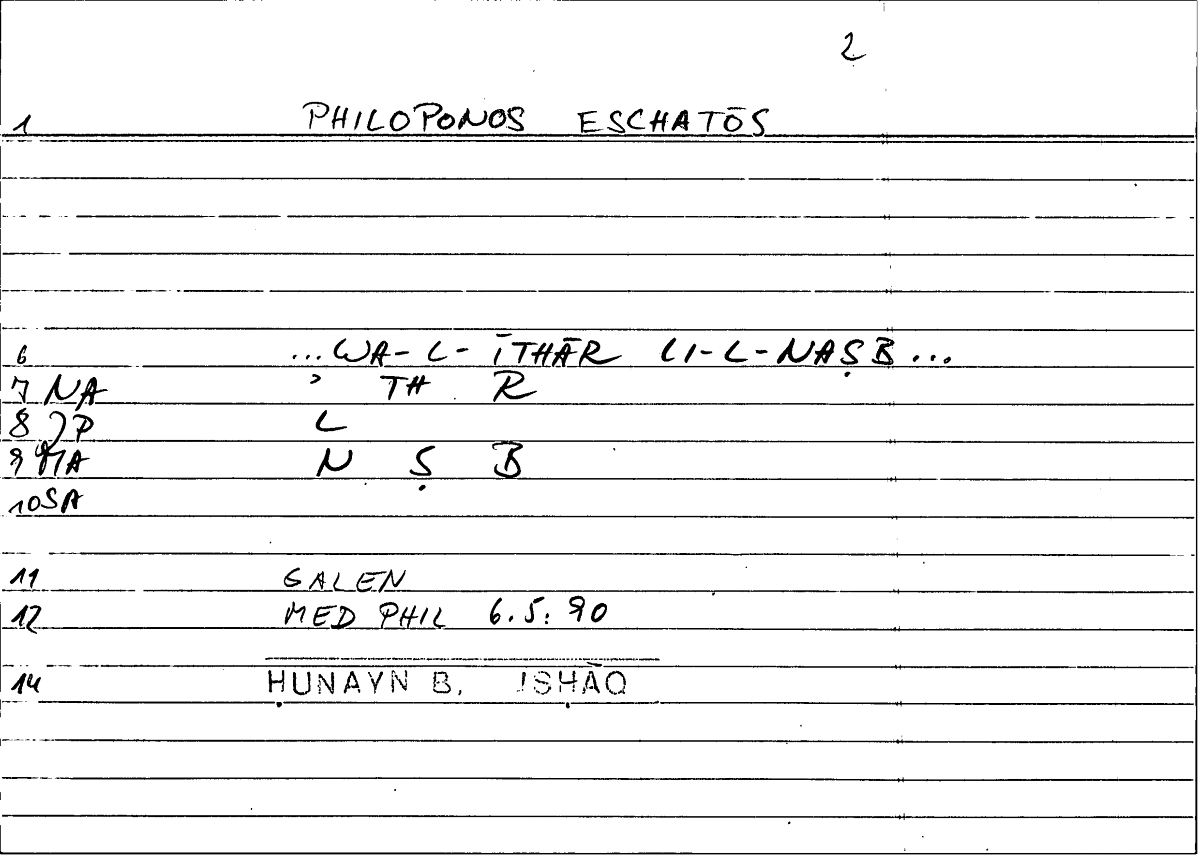 2
1 PHILOPONOS ESCHATŌS
6 ...WA-L-ĪTHĀR LI-L-NAṢB...
7 NA ʾ TH R
8 JP L
9 MA N Ṣ B
10 SA
11 GALEN
12 MED PHIL 6.5: 90
14 ḤUNAYN B. ISḤĀQ